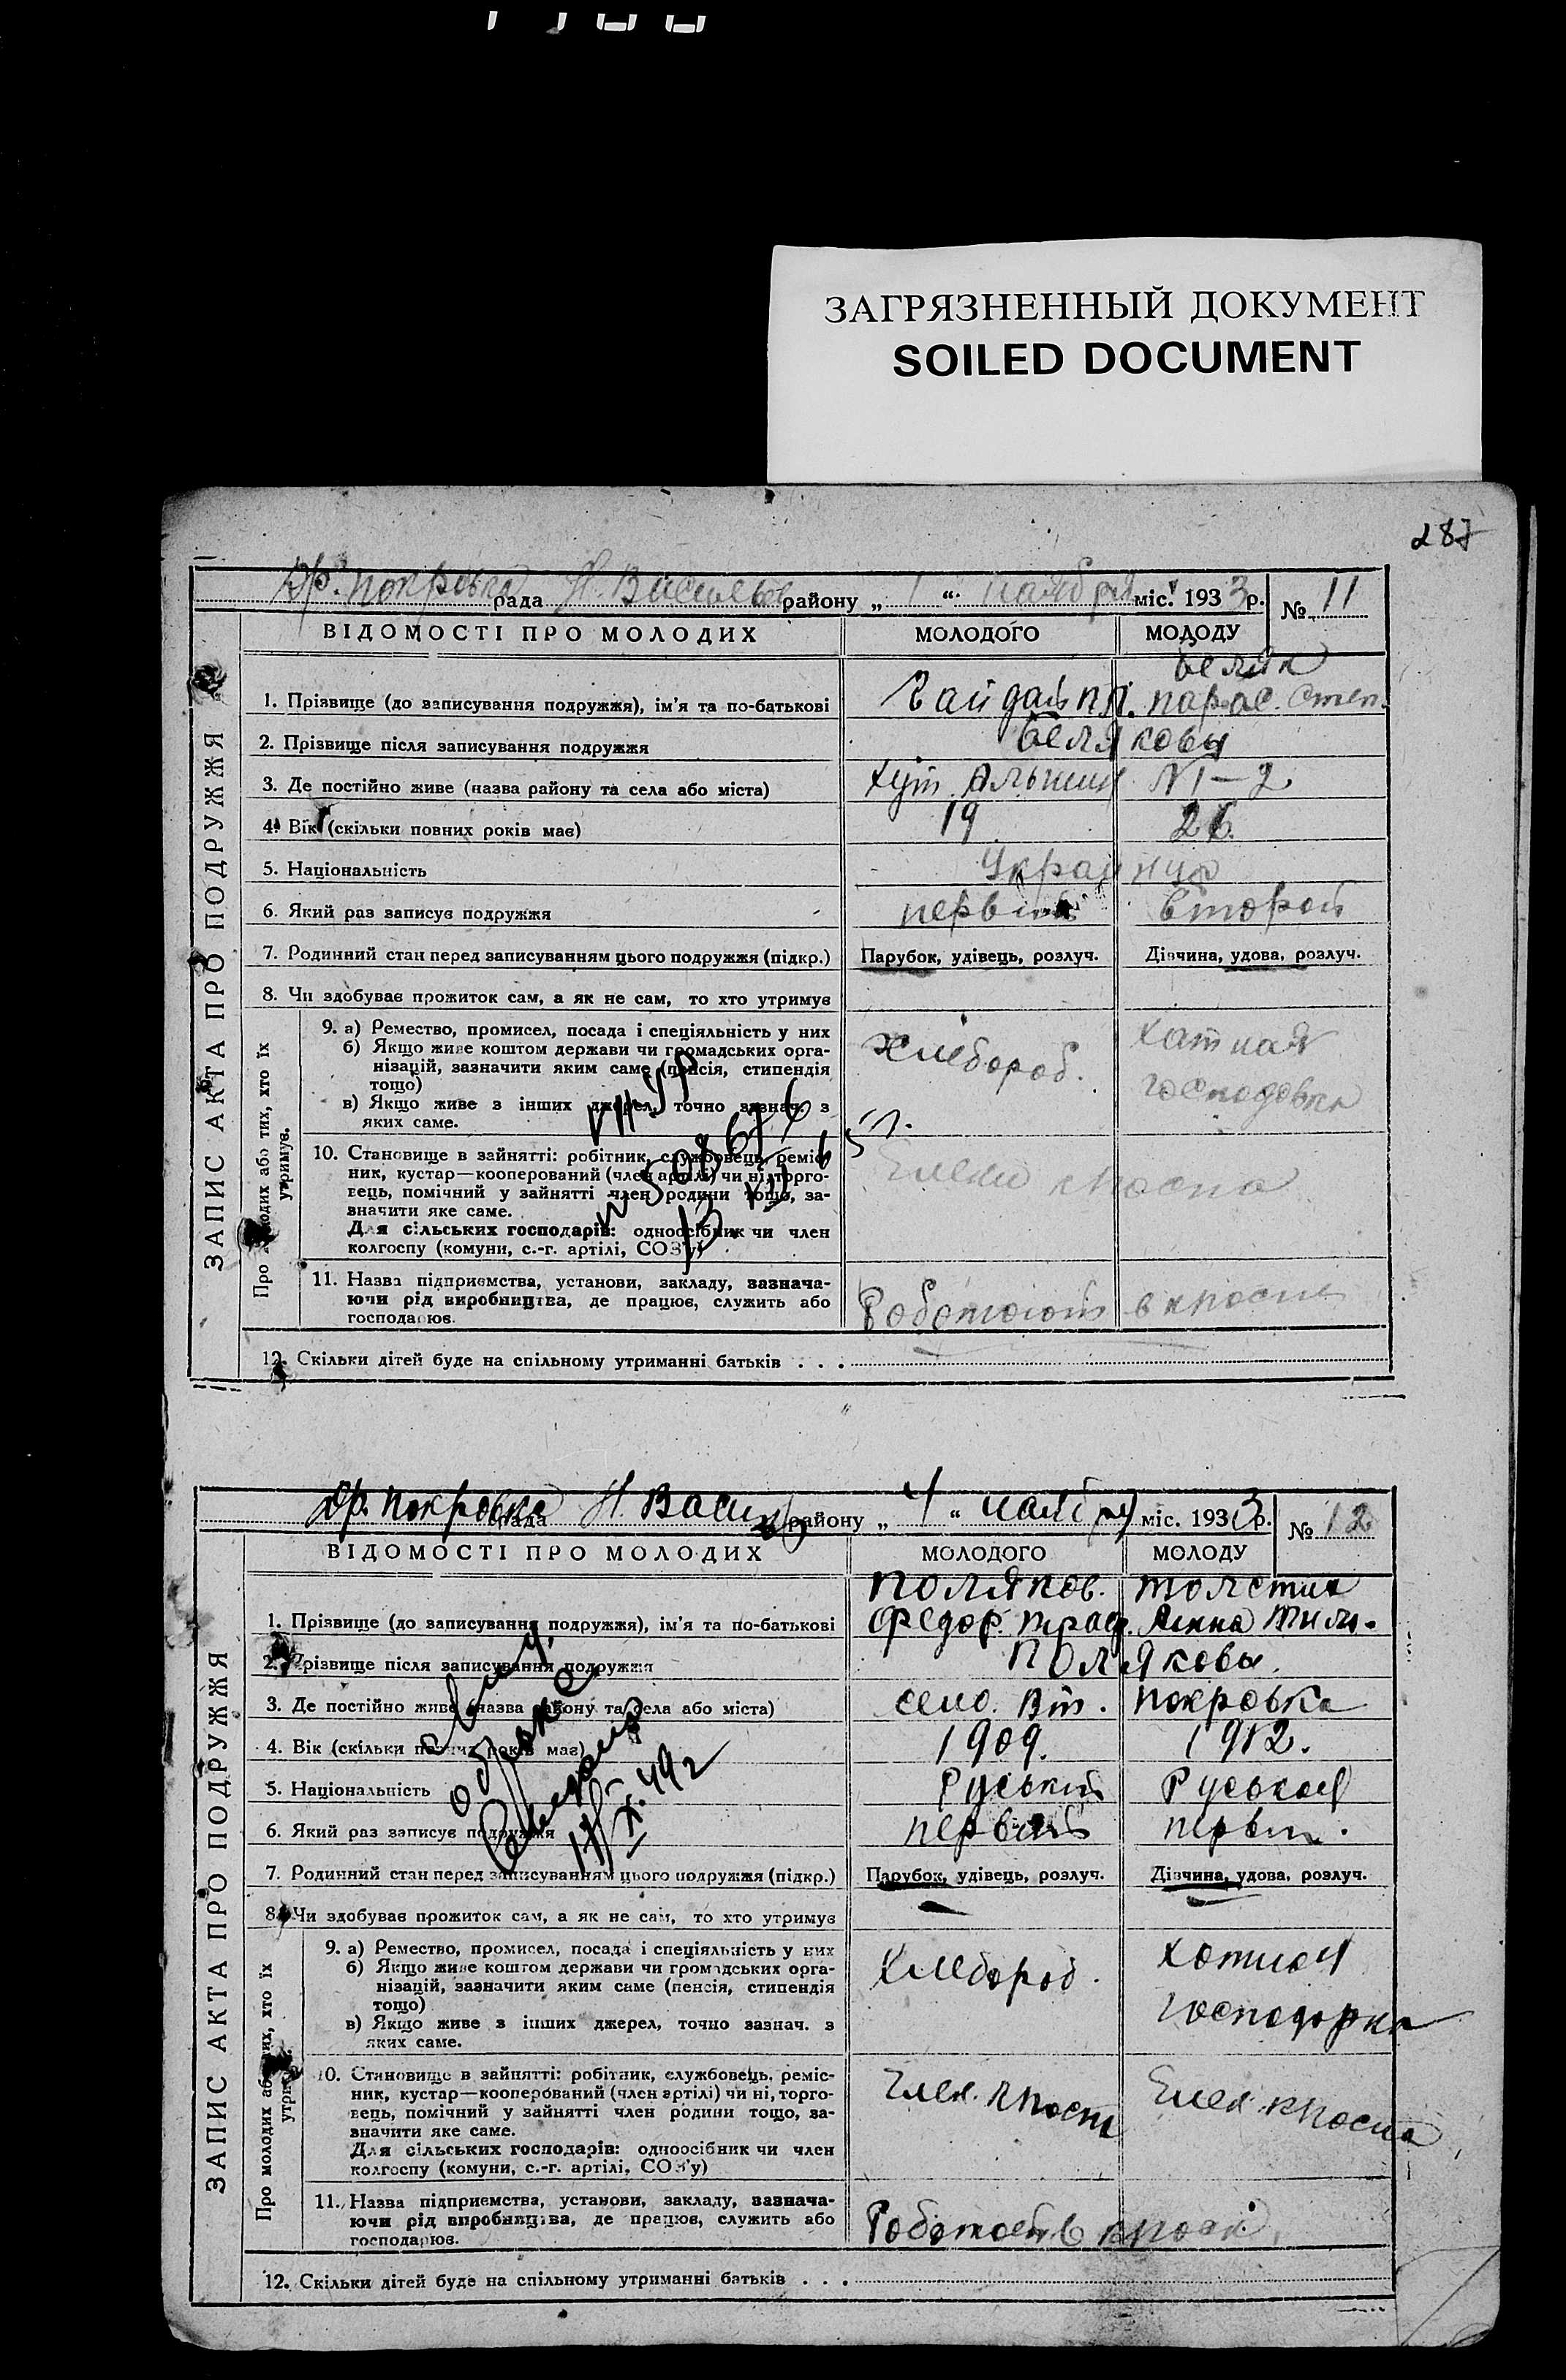 ЗАГРЯЗНЕННЫЙ ДОКУМЕНТ
SOILED DOCUMENT
287
Др. покровка рада Н. Васильев району „ 1 “ ноября міс. 1933 р. № 11
ВІДОМОСТІ ПРО МОЛОДИХ МОЛОДОГО МОЛОДУ
ЗАПИС АКТА ПРО ПОДРУЖЖЯ
Беляк
1. Прізвище (до записування подружжя), ім'я та по-батькові парас. Степ.
2. Прізвище після записування подружжя беляковы
3. Де постійно живе (назва району та села або міста) хут. №1-2
4. Вік (скільки повних років має) 19 26
5. Національність Украинцы
6. Який раз записує подружжя первый второй
7. Родинний стан перед записуванням цього подружжя (підкр.) Парубок, удівець, розлуч. Дівчина, удова, розлуч.
8. Чи здобуває прожиток сам, а як не сам, то хто утримує
Про молодих або тих, хто їх утримує.
9. а) Ремество, промисел, посада і спеціяльність у них хлебороб. хатная
б) Якщо живе коштом держави чи громадських орга-
нізацій, зазначити яким саме (пенсія, стипендія господарка
тощо)
в) Якщо живе з інших джерел, точно зазнач. з
яких саме.
10. Становище в зайнятті: робітник, службовець, реміс-
ник, кустар—кооперований (член артілі) чи ні, торго-
вець, помічний у зайнятті член родини тощо, за-
значити яке саме.
Для сільських господарів: одноосібник чи член
колгоспу (комуни, с.-г. артілі, СОЗ'у)
11. Назва підприємства, установи, закладу, зазнача-
ючи рід виробництва, де працює, служить або
господарює.
12. Скільки дітей буде на спільному утриманні батьків . . .
Др. покровка рада Н. Васильев району „ 4 “ ноября міс. 1933 р. № 12
ВІДОМОСТІ ПРО МОЛОДИХ МОЛОДОГО МОЛОДУ
ЗАПИС АКТА ПРО ПОДРУЖЖЯ
поляков. толстик
1. Прізвище (до записування подружжя), ім'я та по-батькові Федор. Троф. Анна Тим.
2. Прізвище після записування подружжя поляковы.
3. Де постійно живе (назва району та села або міста) село. Вт. покровка
4. Вік (скільки повних років має) 1909. 1912.
5. Національність Руський Руськая
6. Який раз записує подружжя первый перв.
7. Родинний стан перед записуванням цього подружжя (підкр.) Парубок, удівець, розлуч. Дівчина, удова, розлуч.
8. Чи здобуває прожиток сам, а як не сам, то хто утримує
Про молодих або тих, хто їх утримує.
9. а) Ремество, промисел, посада і спеціяльність у них хлебороб. хатная
б) Якщо живе коштом держави чи громадських орга-
нізацій, зазначити яким саме (пенсія, стипендія
тощо) господарка
в) Якщо живе з інших джерел, точно зазнач. з
яких саме.
10. Становище в зайнятті: робітник, службовець, реміс-
ник, кустар—кооперований (член артілі) чи ні, торго-
вець, помічний у зайнятті член родини тощо, за-
значити яке саме.
Для сільських господарів: одноосібник чи член
колгоспу (комуни, с.-г. артілі, СОЗ'у)
11. Назва підприємства, установи, закладу, зазнача-
ючи рід виробництва, де працює, служить або
господарює.
12. Скільки дітей буде на спільному утриманні батьків . . .